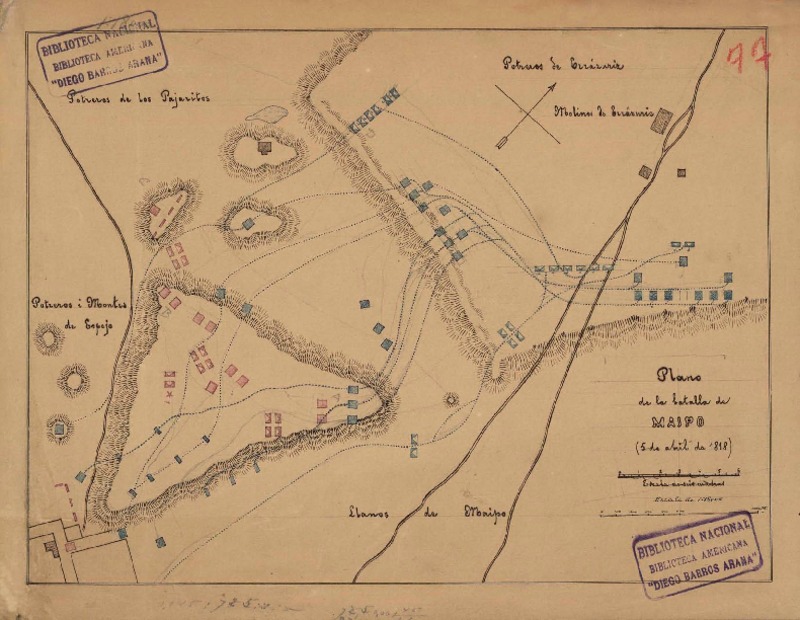 BIBLIOTECA NACIONAL
BIBLIOTECA AMERICANA
"DIEGO BARROS ARANA"
77
Potreros de los Pajaritos
Potreros de Errázuriz
Molinos de Errázuriz
Potreros i Montes
de Espejo
Plano
de la batalla de
MAIPO
(5 de abril de 1818)
Llanos de Maipo
BIBLIOTECA NACIONAL
BIBLIOTECA AMERICANA
"DIEGO BARROS ARANA"